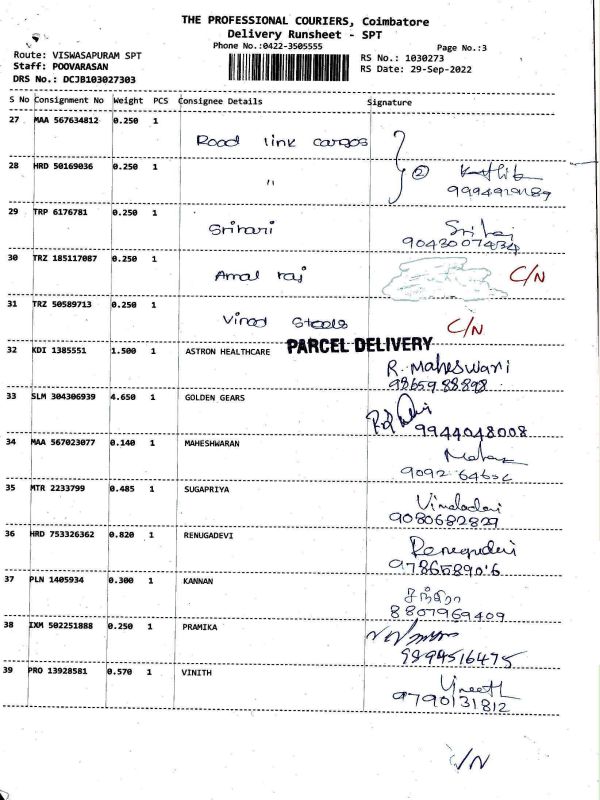 THE PROFESSIONAL COURIERS, Coimbatore
Delivery Runsheet - SPT
Phone No.:0422-3505555 Page No.:3
Route: VISWASAPURAM SPT RS No.: 1030273
Staff: POOVARASAN RS Date: 29-Sep-2022
DRS No.: DCJB103027303
S No Consignment No Weight PCS Consignee Details Signature
27 MAA 567634812 0.250 1 Road link cargos
28 HRD 50169036 0.250 1 " 2
29 TRP 6176781 0.250 1 Srihari
9043007434
30 TRZ 185117087 0.250 1 Amal raj C/N
31 TRZ 50589713 0.250 1 Vinod Steels C/N
PARCEL DELIVERY
32 KDI 1385551 1.500 1 ASTRON HEALTHCARE R. Maheswari
9865988898
33 SLM 304306939 4.650 1 GOLDEN GEARS
9944048008
34 MAA 567023077 0.140 1 MAHESHWARAN
35 MTR 2233799 0.485 1 SUGAPRIYA
9080682829
36 HRD 753326362 0.820 1 RENUGADEVI
37 PLN 1405934 0.300 1 KANNAN
8807969409
38 IXM 502251888 0.250 1 PRAMIKA
9894516475
39 PRO 13928581 0.570 1 VINITH Vineeth
9790131812
C/N